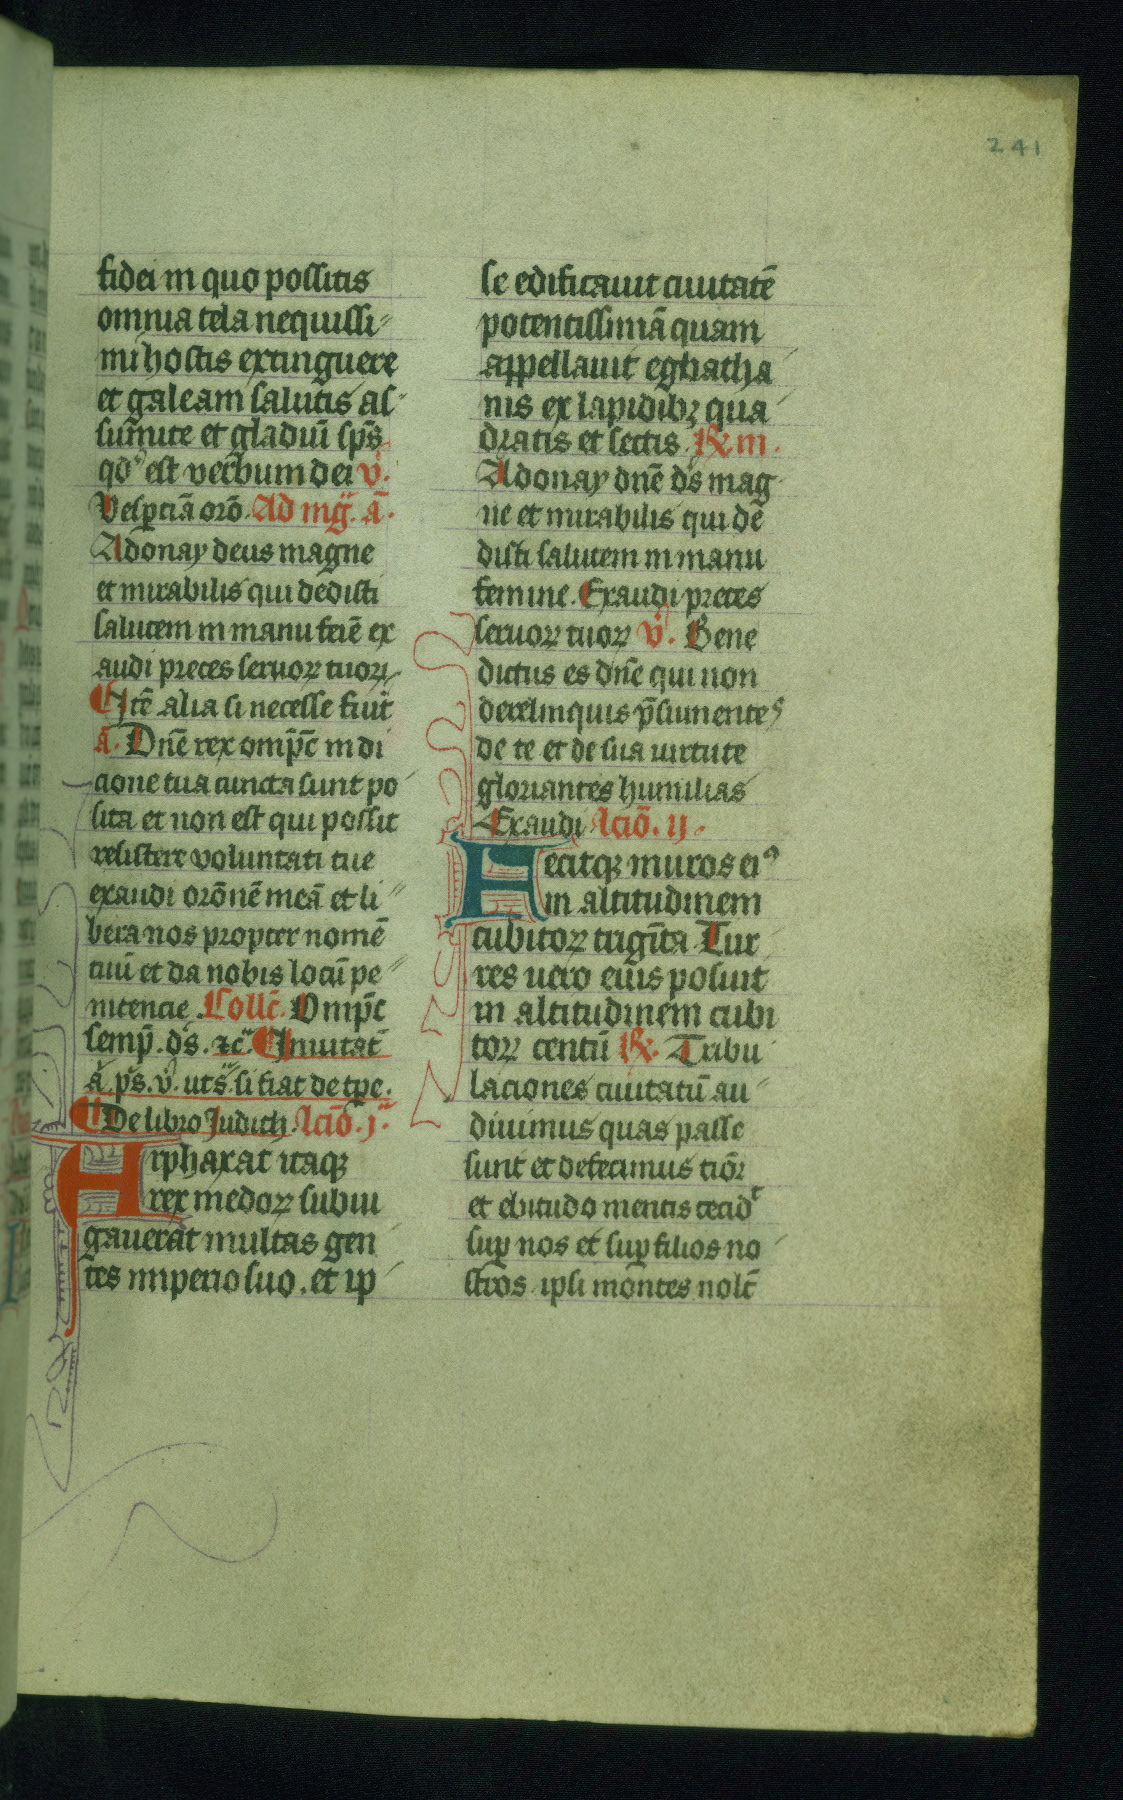 241
fidei in quo possitis
omnia tela nequissi-
mi hostis extinguere
et galeam salutis as-
sumite et gladiū sp̄s
qd' est verbum dei v̊.
Vesp̱tiā orō. Ad mg̃. ā.
Adonay deus magne
et mirabilis qui dedisti
salutem in manu feīe ex
audi preces seruoꝝ tuoꝝ
¶ Itē alia si necesse fuīt
ā. Dn̄e rex omp̄c in di
cione tua cuncta sunt po
sita et non est qui possit
resistere voluntati tue
exaudi orōnē meā et li-
bera nos propter nomē
tuū et da nobis locū pe-
nitencie. Collc̄. Omp̄c
semp̄. ds̄. ⁊c̄. ¶ Inuitat̄
ā. ps̄. v̊. ut s̄. si fiat de tp̱e.
¶ De libro Judith. lc̄iō. j.ᵃ
Arphaxat itaqꝫ
rex medoꝝ subiu
gauerat multas gen
tes imperio suo. et ip
se edificauit ciuitatē
potentissimā quam
appellauit egbatha
nis ex lapidibꝫ qua
dratis et sectis. ℞ m.
Adonay dn̄e ds̄ mag
ne et mirabilis qui de
disti salutem in manu
femine. Exaudi preces
seruoꝝ tuoꝝ v̊. Bene
dictus es dn̄e qui non
derelinquis p̄sumentes
de te et de sua uirtute
gloriantes humilias
Exaudi lc̄iō. ij.
Fecitqꝫ muros eiꝰ
in altitudinem
cubitoꝝ trigīta Tur
res uero eius posuit
in altitudinem cubi
toꝝ centū ℞. Tribu
laciones ciuitatū au-
diuimus quas passe
sunt et defecimus tiōr
et ebitudo mentis cecidᵗ
sup̱ nos et sup̱ filios no
stros ipsi montes nolc̄